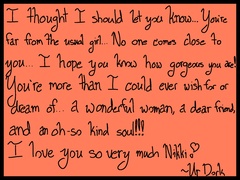 I thought I should let you know... You're
far from the usual girl... No one comes close to
you... I hope you know how gorgeous you are!
You're more than I could ever wish for or
dream of... a wonderful woman, a dear friend,
and an oh-so kind soul!!!
I love you so very much Nikki!
~Ur Dork